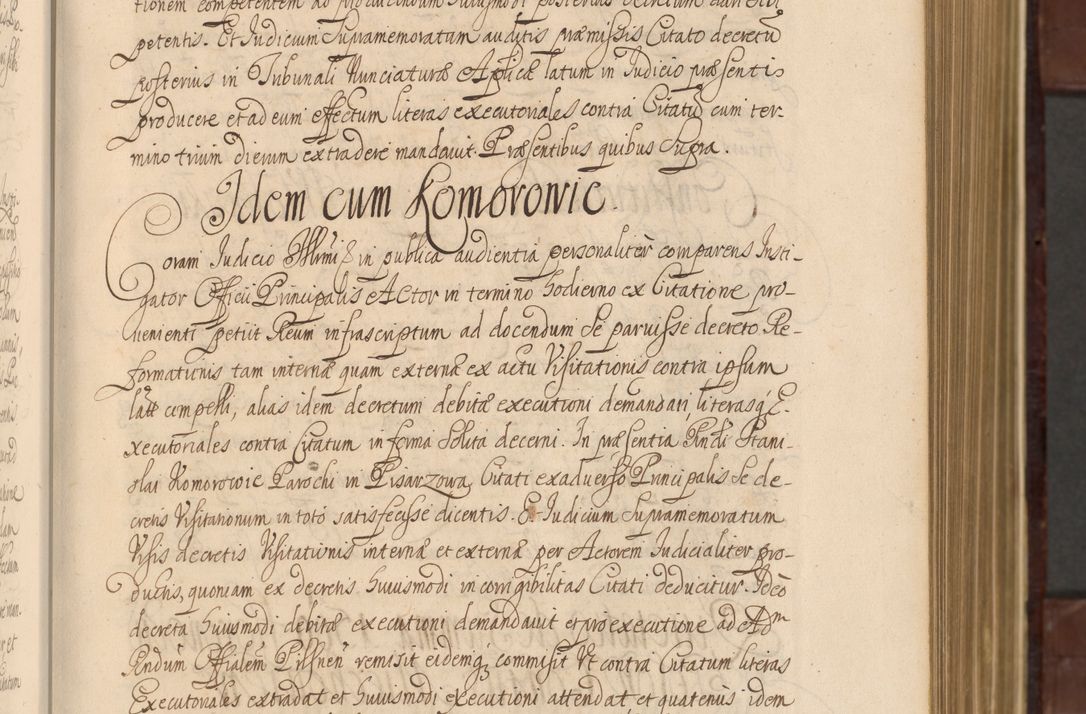 tionem competentem ad producendum huiusmodi posterius decretum
petentis. Et Iudicium Supramemoratum auditis præmissis Citato decretū
posterius in Tribunali Nunciaturæ Aplicæ latum in Iudicio præsenti
producere et ad eum effectum literas executoriales contra Citatū cum ter-
mino trium dierum extradere mandavit. Præsentibus quibus Supra.
Idem cum Komorowic.
Coram Iudicio Illmi in publica audientia personaliter comparens Insti-
gator Officii Principalis Actor in termino hodierno ex Citatione pro-
venienti petiit Reum infrascriptum ad docendum se paruisse decreto Re-
formationis tam internæ quam externæ ex actu Visitationis contra ipsum
latæ compelli, alias idem decretum debitæ executioni demandari literasq E-
xecutoriales contra Citatum in forma solita decerni. In præsentia Rndi Stani-
slai Komorowic Parochi in Pisarzowa Citati ex adverso Principalis se de-
cretis Visitationum in toto satisfecisse dicentis. Et Iudicium Supramemoratum
Visis decretis Visitationis internæ et externæ per Actorem Iudicialiter pro-
ductis, quoniam ex decretis huiusmodi incorrigibilitas Citati deducitur. Ideo
decreta huiusmodi debitæ executioni demandavit et pro executione ad Adm
Rndum Offialem remisit eidemq commisit Vt contra Citatum literas
Executoriales extradat et huiusmodi executioni attendat et quatenus idem